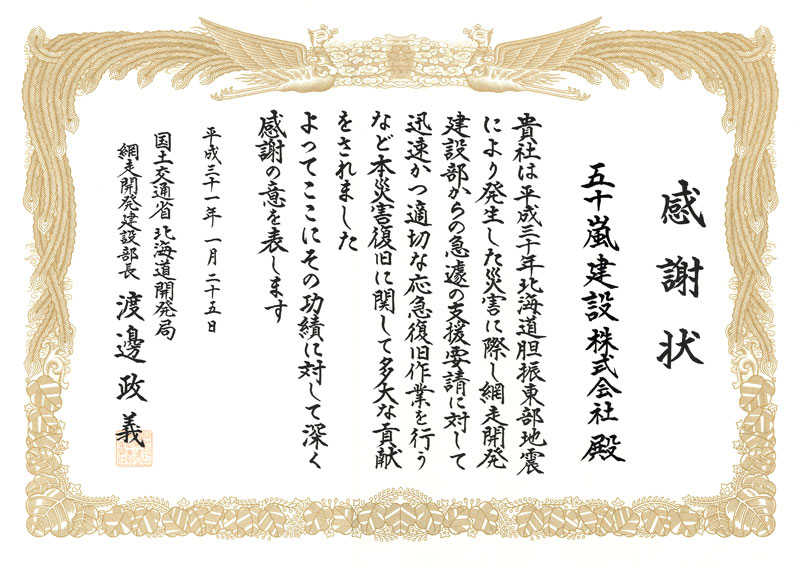 感謝状
五十嵐建設株式会社 殿
貴社は平成三十年北海道胆振東部地震
により発生した災害に際し網走開発
建設部からの急遽の支援要請に対して
迅速かつ適切な応急復旧作業を行う
など本災害復旧に関して多大な貢献
をされました
よってここにその功績に対して深く
感謝の意を表します
平成三十一年一月二十五日
国土交通省 北海道開発局
網走開発建設部長 渡邊政義